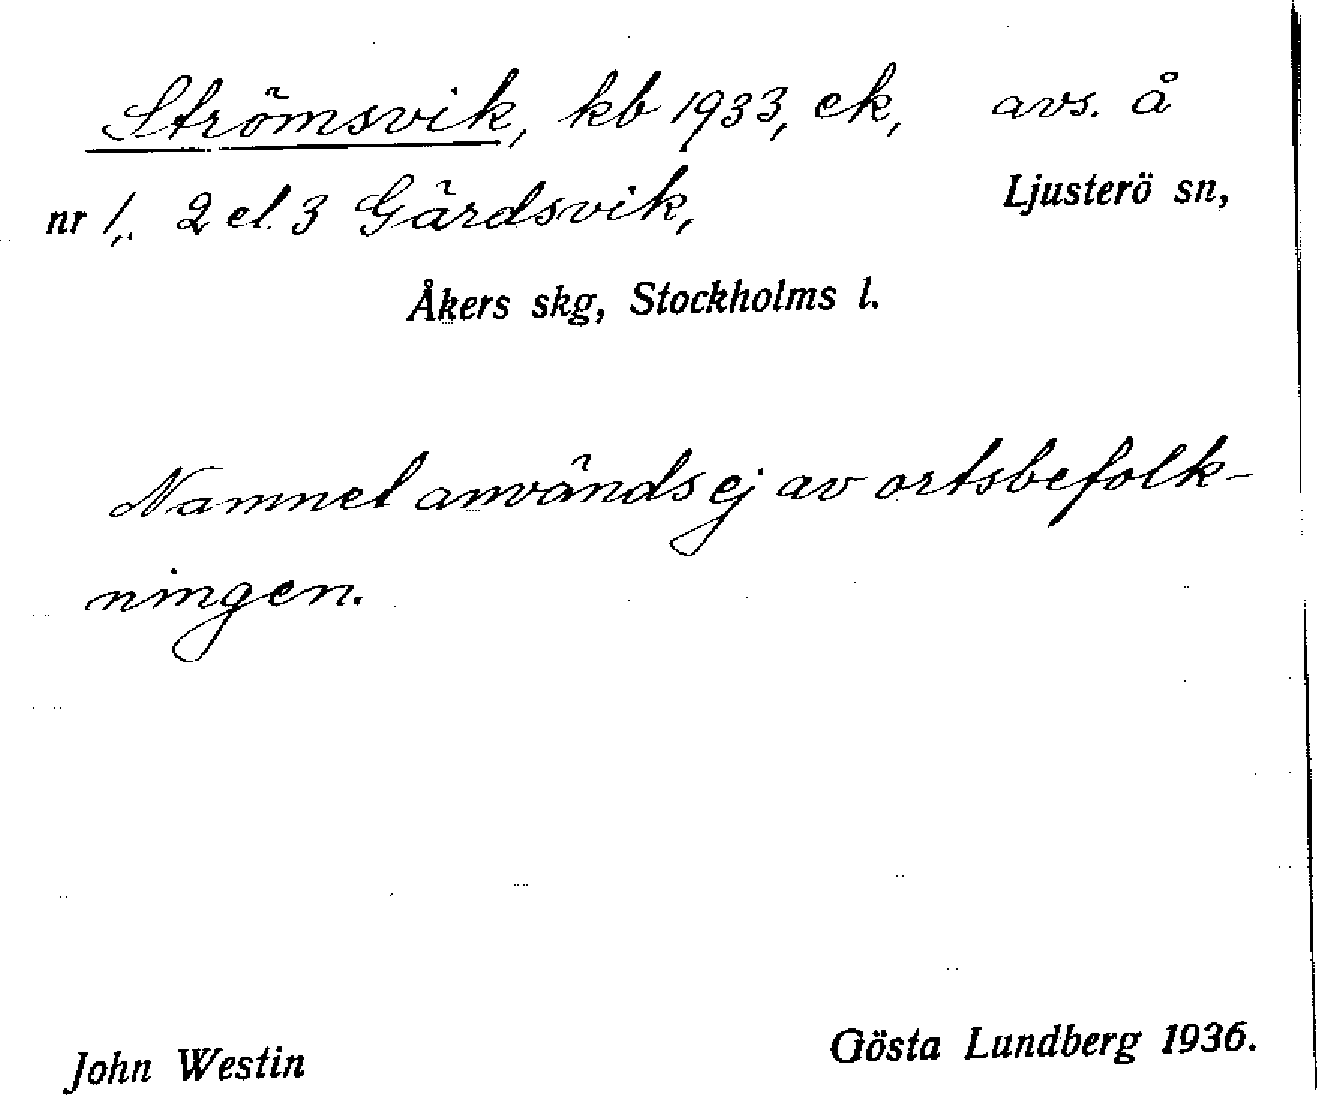 Strömsvik, kb 1933, ek, avs. å
nr 1, 2 el. 3 Gärdsvik, Ljusterö sn,
Åkers skg, Stockholms l.
Namnet används ej av ortsbefolk-
ningen.
John Westin Gösta Lundberg 1936.